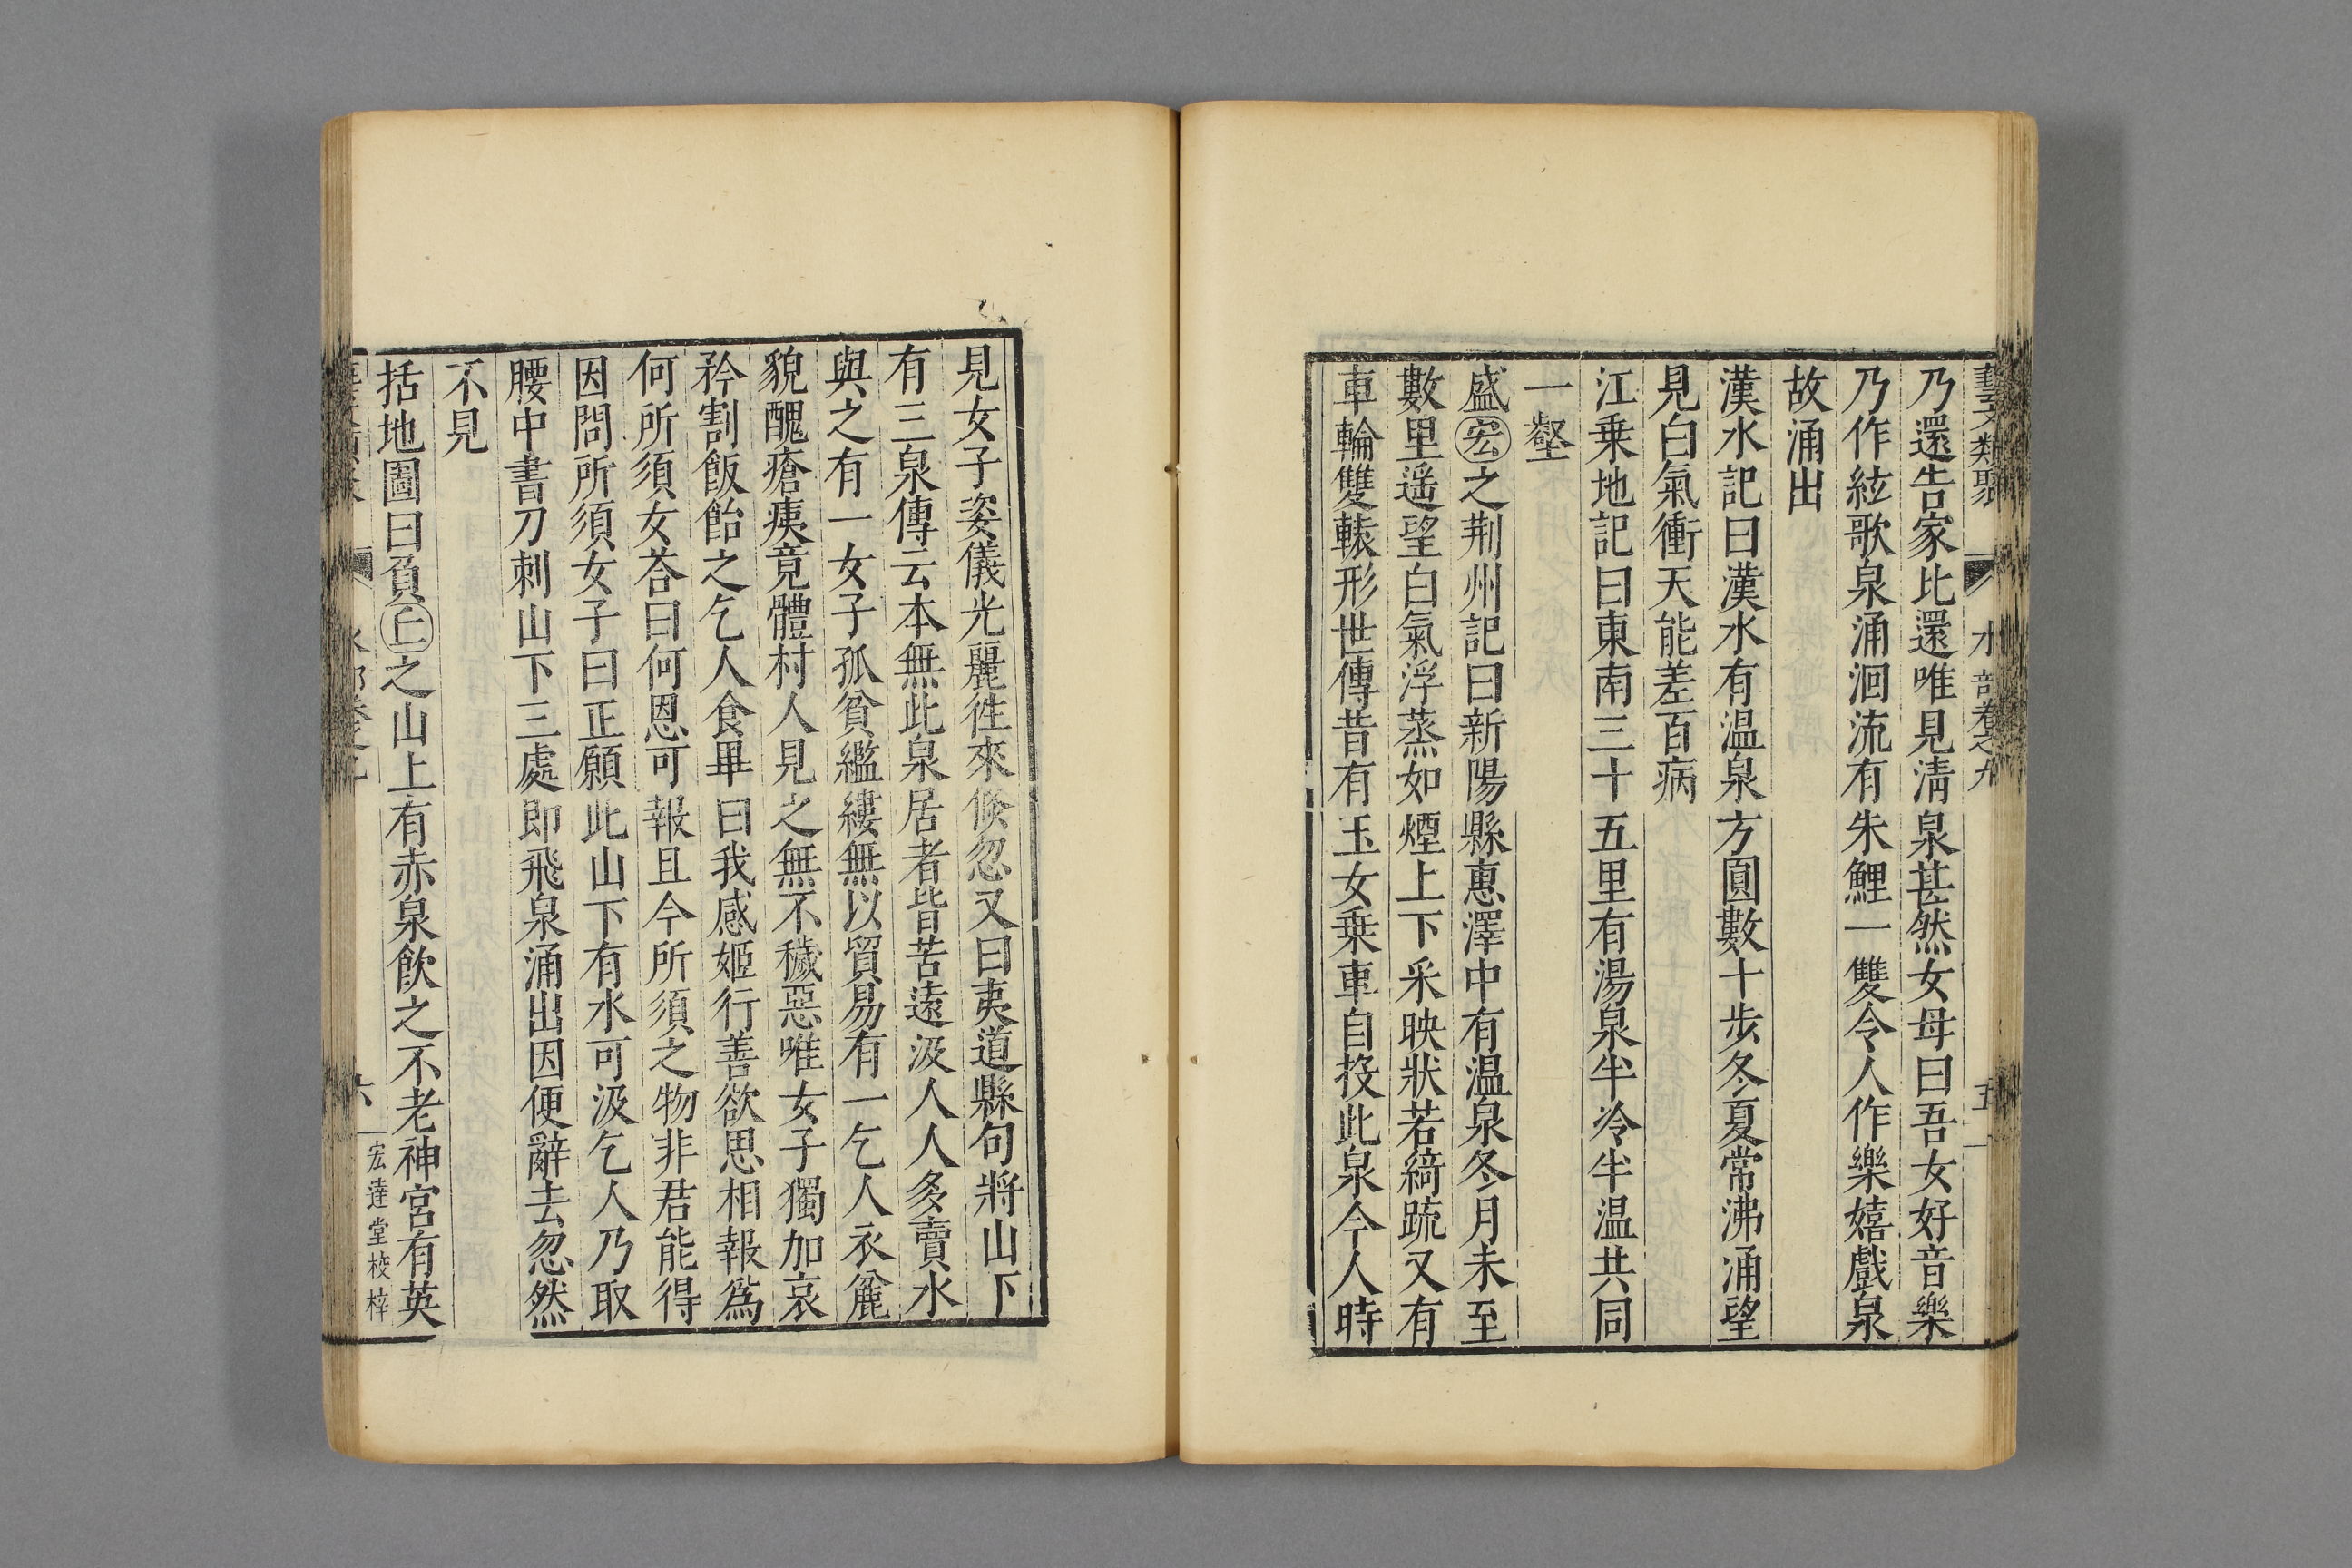 藝文類聚 水部卷之九 五
乃還告家比還唯見清泉甚然女母曰吾女好音樂
乃作絃歌泉涌洄流有朱鯉一雙令人作樂嬉戲泉
故涌出
漢水記曰漢水有温泉方圓數十步冬夏常沸涌望
見白氣衝天能差百病
江乗地記曰東南三十五里有湯泉半冷半温共同
一壑
盛宏之荆州記曰新陽縣惠澤中有温泉冬月未至
數里遥望白氣浮蒸如煙上下采映狀若綺疏又有
車輪雙轅形世傳昔有玉女乗車自投此泉今人時
見女子姿儀光麗徃來倏忽又曰夷道縣句將山下
有三泉傳云本無此泉居者皆苦遠汲人人多賣水
與之有一女子孤貧繿縷無以貿易有一乞人衣麄
貌醜瘡痍竟體村人見之無不穢惡唯女子獨加哀
矜割飯飴之乞人食畢曰我感姬行善欲思相報為
何所須女荅曰何恩可報且今所須之物非君能得
因問所須女子曰正願此山下有水可汲乞人乃取
腰中書刀刺山下三處即飛泉涌出因便辭去忽然
不見
括地圖曰負丘之山上有赤泉飲之不老神宮有英
六 宏達堂校梓